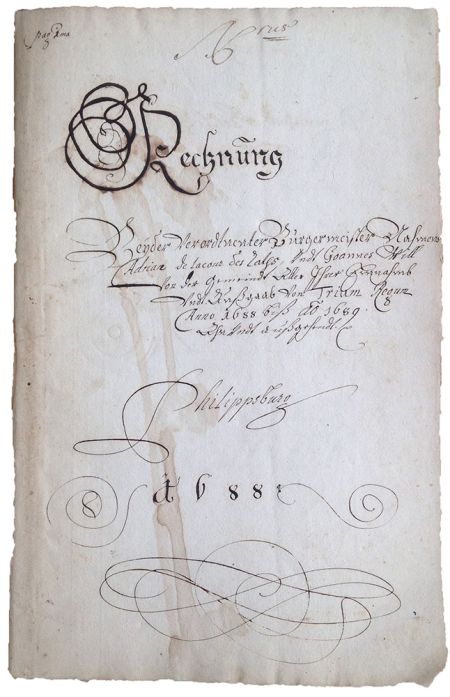 pag 1ma
Nrus
Rechnũng
Beyder Verordtneter Bürgermeister Nahmens
Adrian de lacour des Raths, Undt Joannes Will
Von der Gemeindt Aller Ihrer Einnahmb
Undt Außgaab Von Trium Regum
Anno 1688 biß Aõ 1689
Philippsburg
A 1688